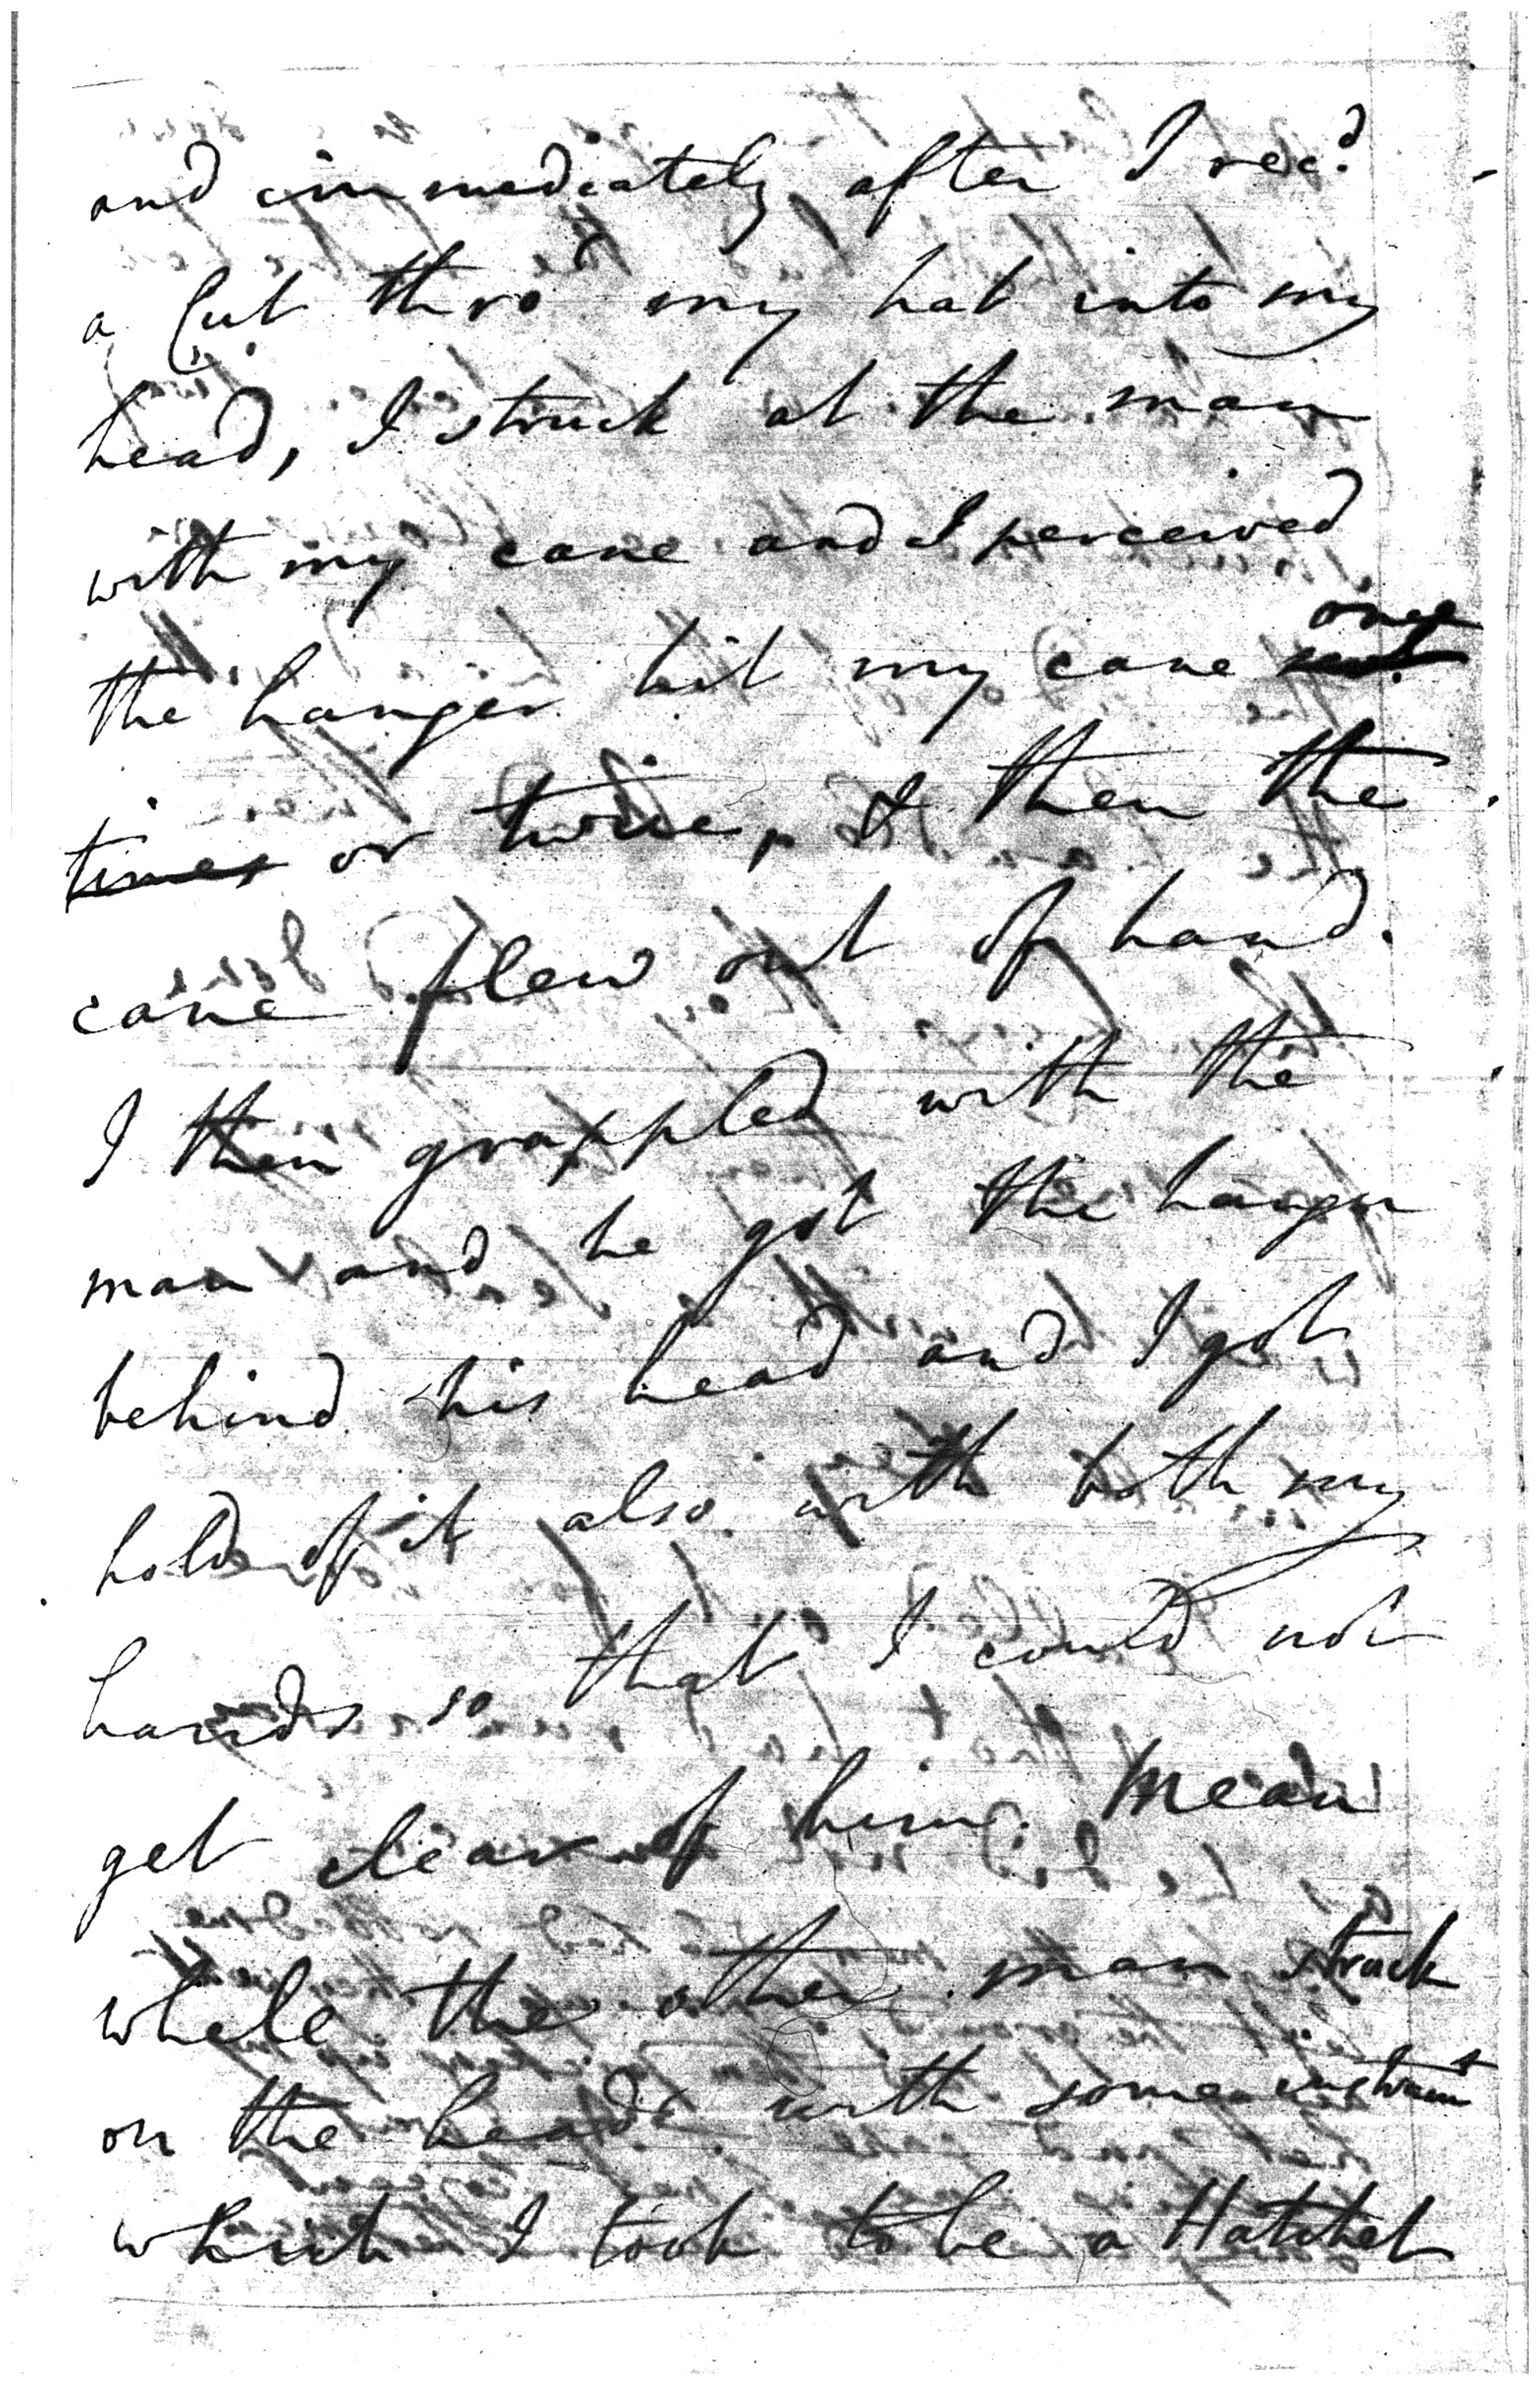 and immediately after I rec.d
a Cut thro' my hat into my
head, I struck at the man
with my cane and I perceived
once
the hanger hit my cane
times or twice, & then the
cane flew out of hand.
I then grappled with the
man and he got the hanger
behind his head and I got
hold of it also with both my
hands so that I could not
get clear of him. Mean
while the other man struck
on the head with some instrumt
which I took to be a Hatchet